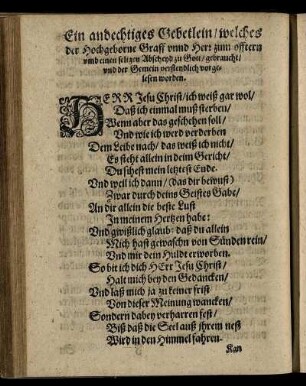 Ein andechtiges Gebetlein/welches
der Hochgeborne Graff vnnd Herr zum offtern
vmb einen seligen Abscheyd zu Gott/gebraucht/
vnd der Gemein verstendlich vorge-
lesen worden.
HERR Jesu Christ/ich weiß gar wol/
Daß ich einmal muß sterben/
Wenn aber das geschehen soll/
Vnd wie ich werd verderben
Dem Leibe nach/das weiß ich nicht/
Es steht allein in deim Gericht/
Du sihest mein letztest Ende.
Vnd weil ich dann/(das dir bewust)
Zwar durch deins Geistes Gabe/
An dir allein die beste Lust
In meinem Hertzen habe:
Vnd gwißlich glaub/daß du allein
Mich hast gewaschn von Sünden rein/
Vnd mir dein Huld erworben.
So bit ich dich HErr Jesu Christ/
Halt mich bey den Gedancken/
Vnd laß mich ja zu keiner frist
Von dieser Meinung wancken/
Sondern dabey verharren fest/
Biß daß die Seel auß ihrem nest
Wird in den Himmel fahren.
Kan